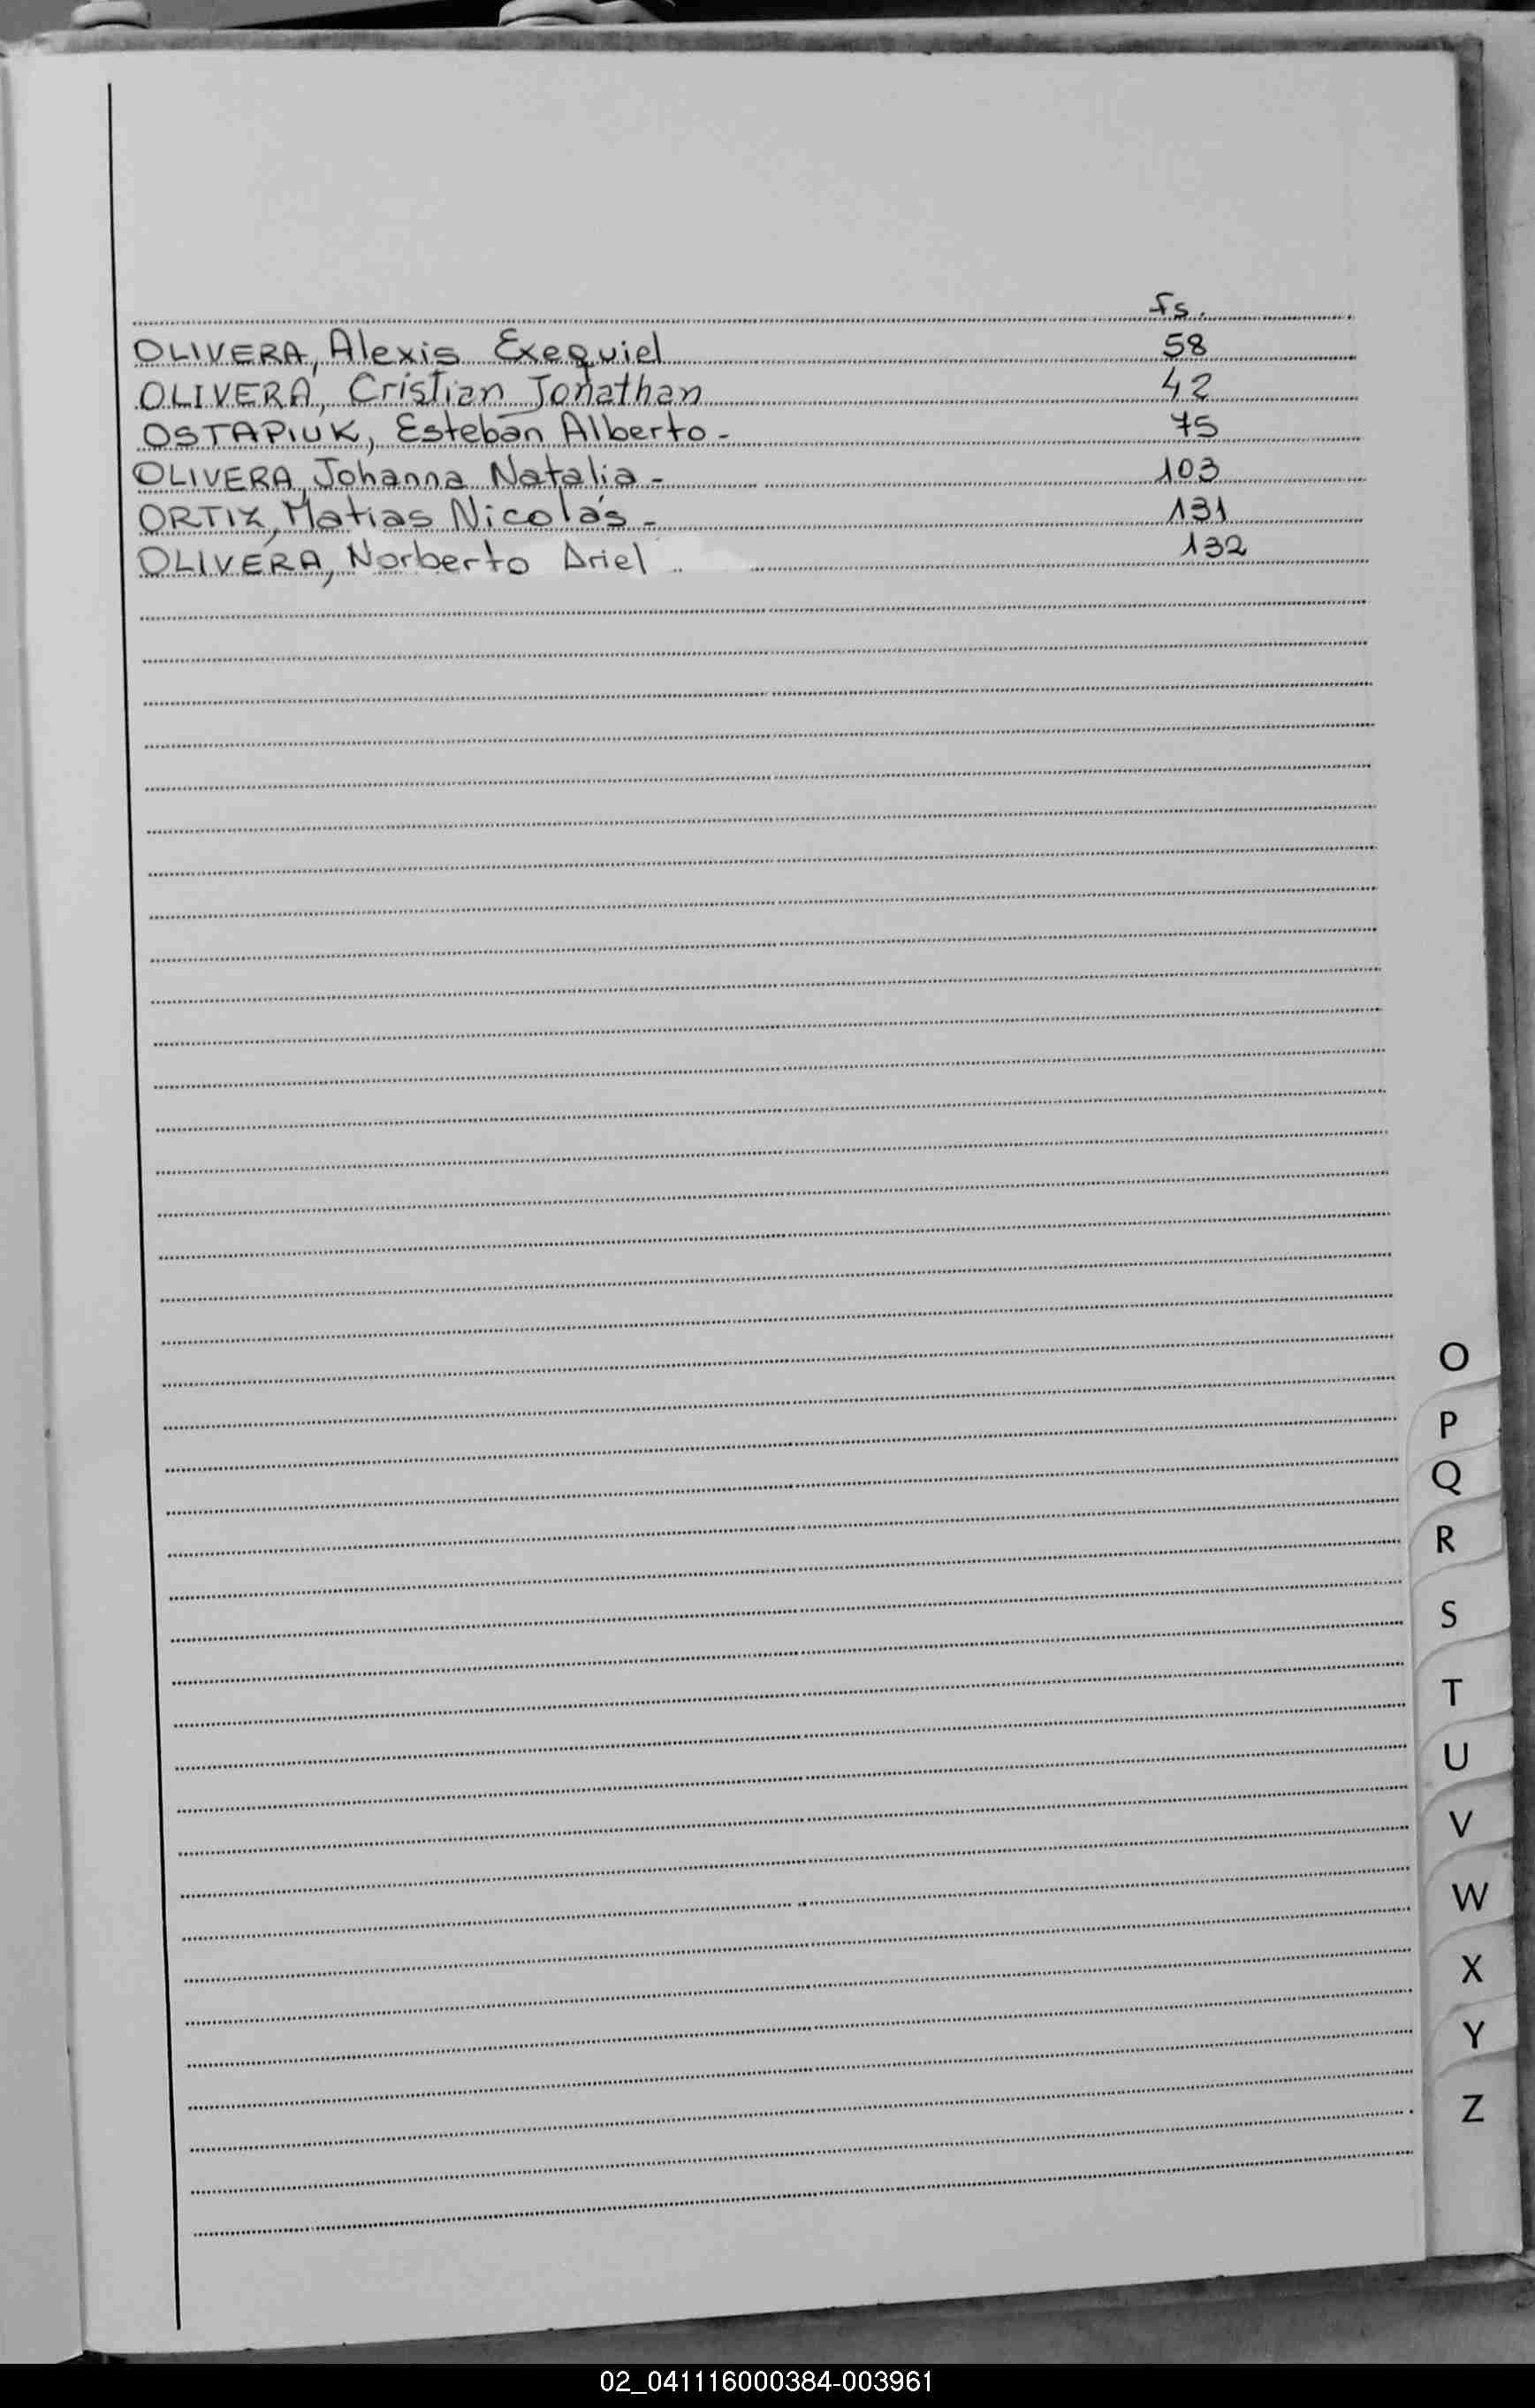 fs.
OLIVERA, Alexis Exequiel 58
OLIVERA, Cristian Jonathan 42
OSTAPIUK, Esteban Alberto - 75
OLIVERA, Johanna Natalia - 103
ORTIZ, Matias Nicolás - 131
OLIVERA, Norberto Ariel 132
O
P
Q
R
S
T
U
V
W
X
Y
Z
02_041116000384-003961